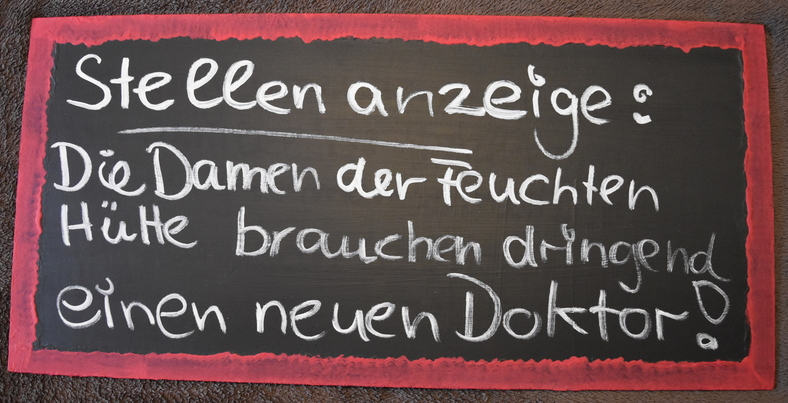 Stellenanzeige:
Die Damen der Feuchten
Hütte brauchen dringend
einen neuen Doktor!